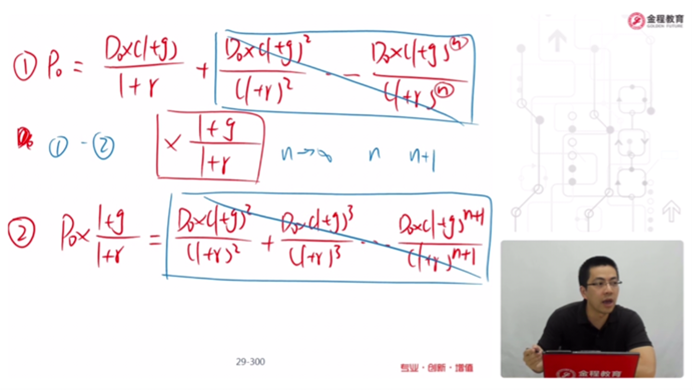 金程教育
GOLDEN FUTURE
① P₀ = D₀×(1+g)/1+r + D₀×(1+g)²/(1+r)² -- D₀×(1+g)ⓝ/(1+r)ⓝ
① - ② × 1+g/1+r n→∞ n n+1
② P₀× 1+g/1+r = D₀×(1+g)²/(1+r)² + D₀×(1+g)³/(1+r)³ --- D₀×(1+g)ⁿ⁺¹/(1+r)ⁿ⁺¹
29-300
专业·创新·增值
金程教育